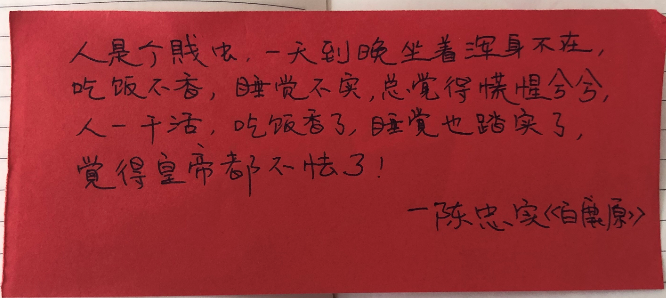 人是个賎虫，一天到晚坐着浑身不在，
吃饭不香，睡觉不实，总觉得慌惶兮兮，
人一干活，吃饭香了，睡覺也踏实了，
覺得皇帝都不怯了！
—陈忠实《白鹿原》